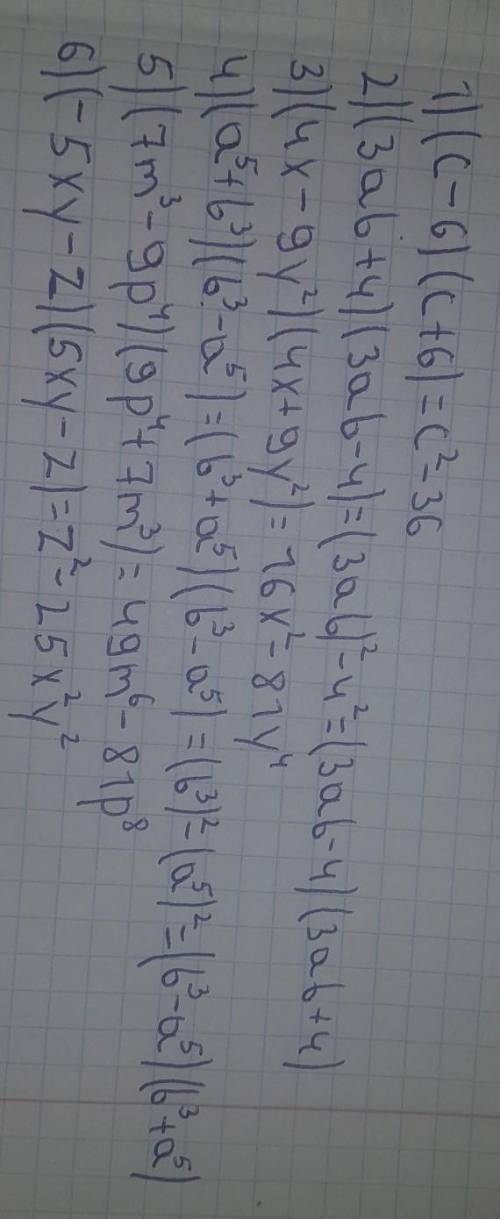 1) (c-6)(c+6)=c²-36
2) (3ab+4)(3ab-4)=(3ab)²-4²=(3ab-4)(3ab+4)
3) (4x-9y²)(4x+9y²)=16x²-81y⁴
4) (a⁵+b³)(b³-a⁵)=(b³+a⁵)(b³-a⁵)=(b³)²-(a⁵)²=(b³-a⁵)(b³+a⁵)
5) (7m³-9p⁴)(9p⁴+7m³)=49m⁶-81p⁸
6) (-5xy-z)(5xy-z)=z²-25x²y²